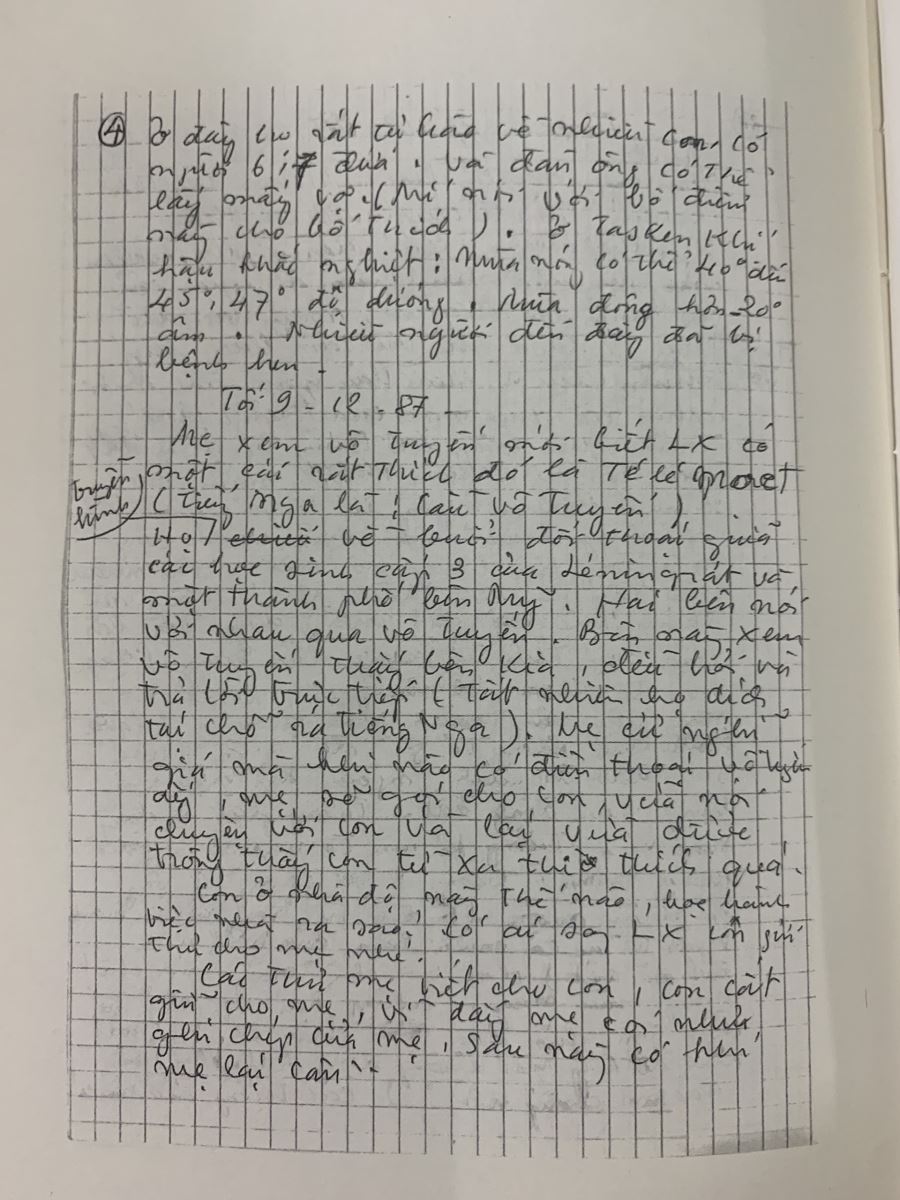 ④ Ở đây họ rất tự hào về nhiều con, có
người 6, 7 đứa. Và đàn ông có thể
lấy mấy vợ. (Mí nói với bố điều
này cho bố tức). Ở Tasken khí
hậu khắc nghiệt: Mùa nóng có thể 40° đến
45°, 47° độ dương. Mùa đông hơn -20°
âm. Nhiều người đến đây đã bị
bệnh hen.
Tối 9-12-87
Mẹ xem vô tuyến mới biết LX có
một cái rất thích đó là Tê lê moct
(tiếng Nga là: Cầu vô tuyến)
truyền hình
Họ về buổi đối thoại giữa
các học sinh cấp 3 của Lêningrát và
một thành phố bên Mỹ. Hai bên nói
với nhau qua vô tuyến. Bên này xem
vô tuyến thấy bên kia, đều hỏi và
trả lời trực tiếp (tất nhiên họ dịch
tại chỗ ra tiếng Nga). Mẹ cứ nghĩ
giá mà khi nào có điện thoại vô tuyến
ấy, mẹ sẽ gọi cho con, vừa nói
chuyện với con và lại vừa được
trông thấy con từ xa thì thích quá.
Con ở nhà độ này thế nào, học hành
việc nhà ra sao? Có ai sang LX con gửi
thư cho mẹ nhé.
Các thư mẹ viết cho con, con cất
giữ cho mẹ, vì đây mẹ coi như
ghi chép của mẹ, sau này có khi
mẹ lại cần..